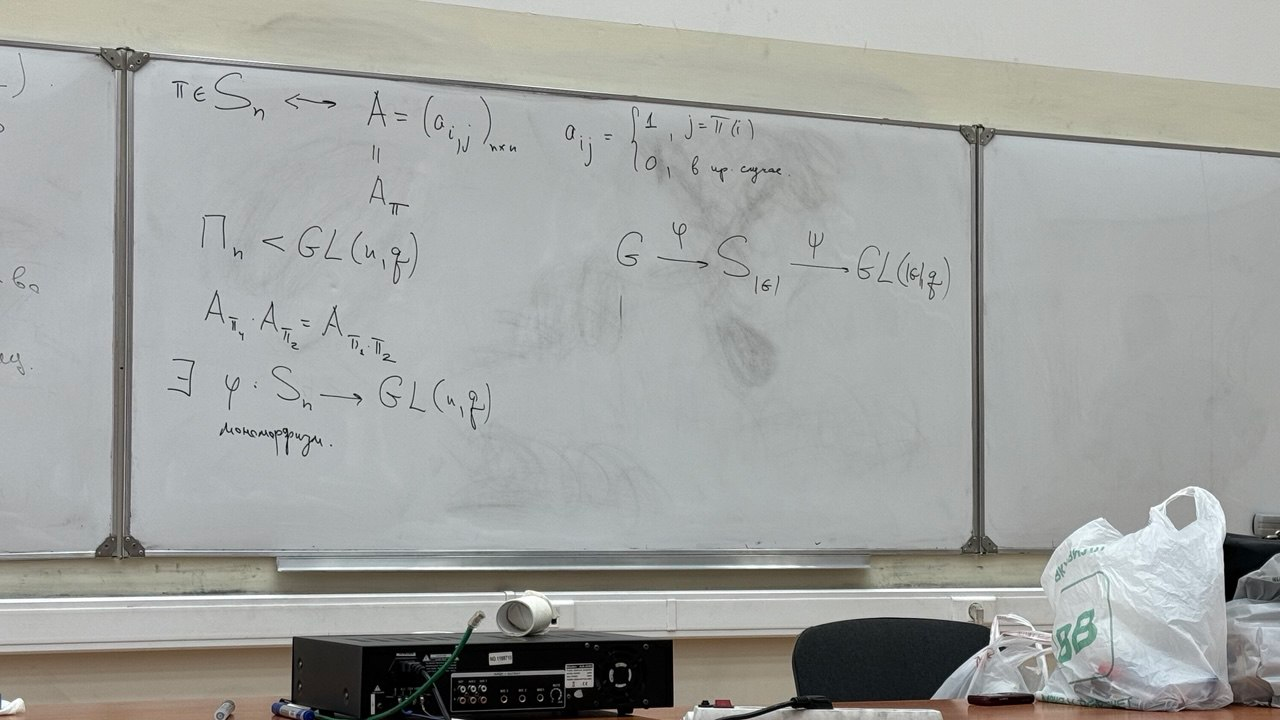 π ∈ Sₙ ↔ A = (a_{i,j})_{n×n}
a_{ij} = { 1, j = π(i)
0, в пр. случае.
||
A_π
Πₙ < GL(n, q)
A_{π₁} · A_{π₂} = A_{π₁·π₂}
∃ φ : Sₙ → GL(n, q)
мономорфизм.
G →^φ S_{|G|} →^ψ GL(|G|, q)
|
во